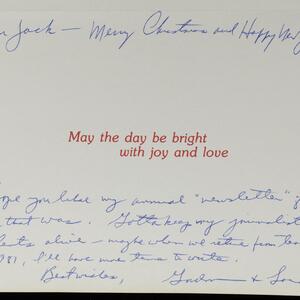 Jack — Merry Christmas and Happy New
May the day be bright
with joy and love
you like my annual "newsletter"
that was. Gotta keep my journalist
alive — maybe when we return from
I'll have more time to write.
Best wishes,